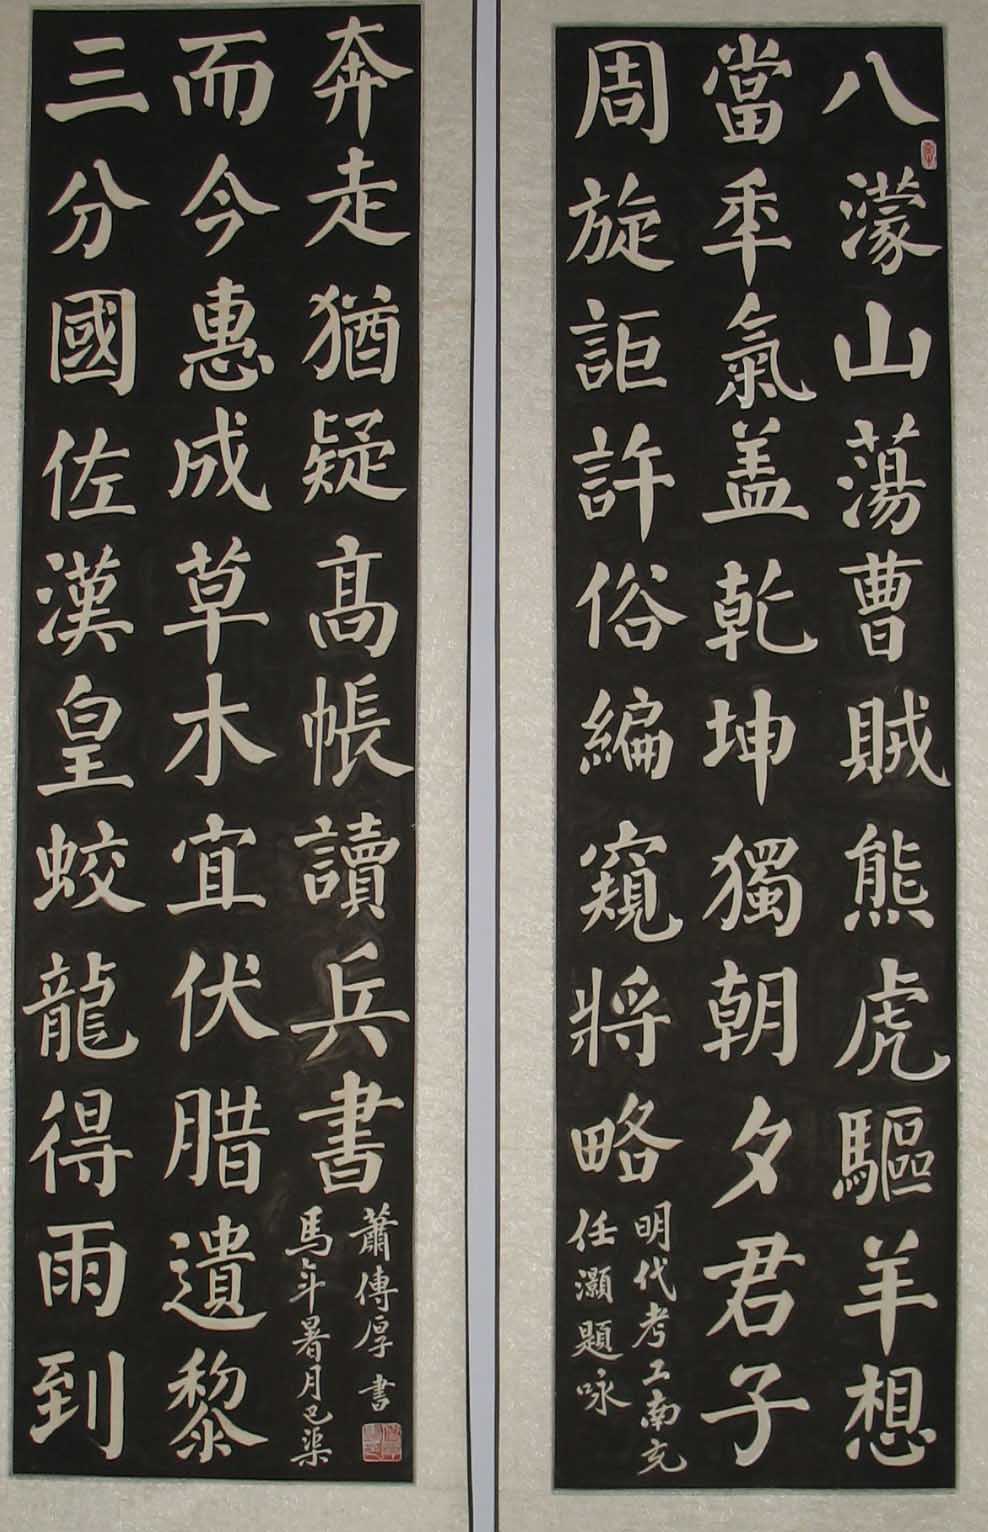 八濛山蕩曹賊熊虎驅羊想
當年氣盖乾坤獨朝夕君子
周旋詎許俗編窺將略
明代考工南充
任灝題咏
三分國佐漢皇蛟龍得雨到
而今惠成草木宜伏腊遺黎
奔走猶疑髙帳讀兵書
馬年暑月巴渠
蕭傳厚書